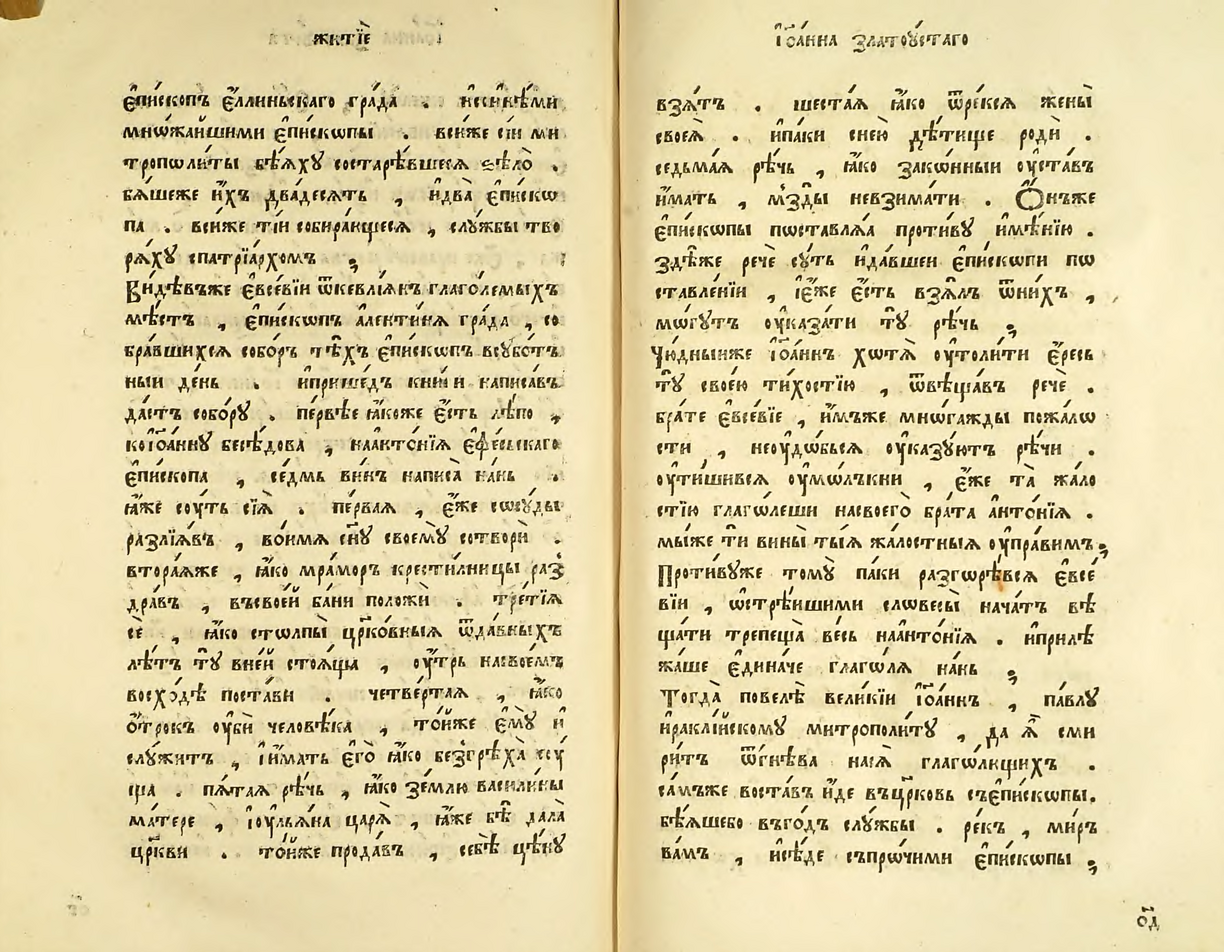 житїе
є҆пи́скопъ є҆́ллиньскаго гра́да . исинѣ́ми
миѡжа́ишими є҆пи́скѡпы . вси́же сїи ми
трополи́ты бѣ́яху состарѣ́вшеся ѕѣло̀ .
бя́шеже и҆́хъ два́десять , и҆два̀ є҆пи́скѡ
па . вси́же ті́и собира́ющеся , слу́жбы тво
ря́ху спатрїа́рхомъ ,
Ви́дѣвъже є҆все́вїи ѿкевлїя́нъ глаго́лемыхъ
мѣ́стъ , є҆пи́скопъ але́нтиня гра́да , со
бра́вшихся собо́ръ тѣ́хъ є҆пи́скопъ всубо́тъ
ныи де́нь . иприше́дъ кни́ги написа́въ
да́стъ собо́ру . пе́рвѣе ꙗ҆́коже є҆́сть лѣ́по ,
коїѡ҆а́нну бесѣ́дова , наанто́нїя є҆фе́сьскаго
є҆пи́скопа , се́дмь ви́нъ написа̀ на́нь .
ꙗ҆́же соу́ть сїя̀ . пе́рвая , є҆́же сосу́ды
разлїя́въ , во́имя сн҃у своему̀ сотворѝ .
втора́яже , ꙗ҆́ко мра́моръ крести́лницы раз
дра́въ , въсвое́й ба́ни положѝ . тре́тїя
сѐ , ꙗ҆́ко столпы̀ црко́вныя ѿда́вныхъ
лѣ́тъ ту̀ вне́й стоя́ща , ѹ҆́трь насвое́мъ
восхо́дѣ поста́ви . четве́ртая , ꙗ҆́ко
ѻ҆́трокъ ѹ҆бѝ человѣ́ка , то́иже є҆му̀ и҆
слу́житъ , їи҆́мать є҆го̀ ꙗ҆́ко безгрѣха̀ су́
ща . пя́тая рѣ́чь , ꙗ҆́ко зе́млю васили́ны
ма́тере , їѹльꙗ́на царя̀ , ꙗ҆́же бѣ̀ дала̀
цр҃кви . то́йже прода́въ , себѣ̀ цѣ́ну
їѡ҆а́нна златоу́стаго
взя́тъ . шеста́я ꙗ҆́ко ѿре́кся жены̀
своея̀ . и҆па́ки сне́ю дѣ́тище родѝ .
седьма́я рѣ́чь , ꙗ҆́ко зако́нныи ѹ҆ста́въ
и҆́мать , мзды̀ невзима́ти . Ѻ҆́нъже
є҆пи́скѡпы пѡставля́а проти́ву и҆мѣ́нїю .
здѣ́же речѐ су́ть и҆да́вшеи є҆пи́скѡпи пѡ
ставле́нїи , їє҆́же є҆́сть взя́лъ ѿни́хъ ,
мо́гутъ ѹ҆каза́ти ту̀ рѣ́чь ,
Чю́дныиже їѡ҆а́ннъ хотя̀ ѹ҆толи́ти є҆́ресь
ту̀ свое́ю ти́хостїю , ѿвѣща́въ речѐ .
бра́те є҆все́вїе , и҆́мъже мно́гажды пожа́лѡ
сти , неѹдо́бься ѹ҆ка́зуютъ рѣ́чи .
ѹ҆тиши́вся ѹ҆мо́лъкни , є҆́же та̀ жа́ло
стїю глаго́леши насвоего̀ бра́та анто́нїя .
мы́же тѝ вины̀ ты́я жа́лостныя ѹ҆пра́вимъ ,
Проти́вуже тому̀ па́ки разгорѣ́вся є҆все́
вїи , ѡ҆стрѣ́ишими словесы̀ нача́тъ вѣ
ща́ти трепеща̀ ве́сь наанто́нїя . иприлѣ
жа́ше є҆дина́че глаго́ля на́нь ,
Тогда̀ повелѣ̀ вели́кїи їѡ҆а́ннъ , па́влу
и҆ракли́йскому митрополи́ту , да я҆̀ сми
ри́тъ ѿгнѣ́ва нася̀ глаго́лющихъ .
са́мъже воста́въ и҆́де въцр҃ковь съє҆пи́скѡпы .
бѣ́яшебо въго́дъ слу́жбы . ре́къ , ми́ръ
ва́мъ , исѣ́де съпро́чими є҆пи́скѡпы ,
о҃д